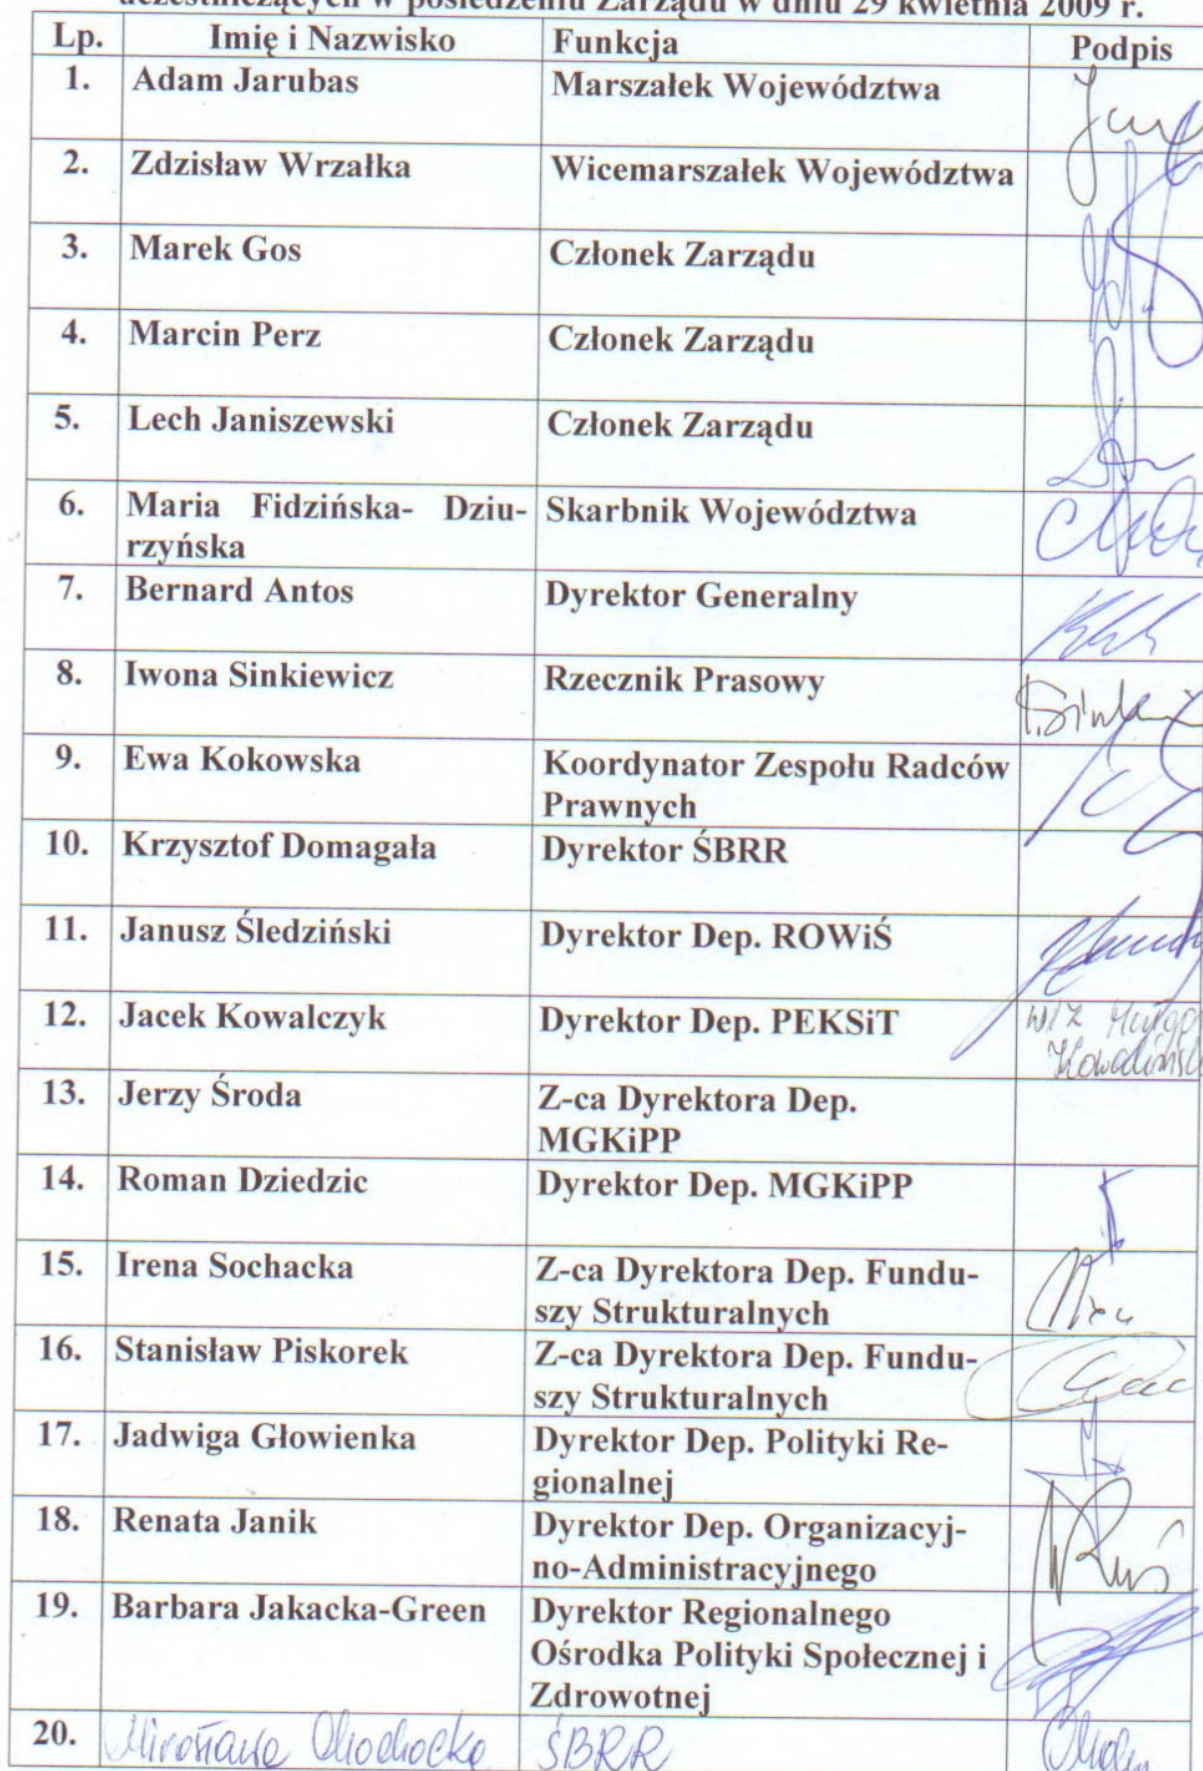 uczestniczących w posiedzeniu Zarządu w dniu 29 kwietnia 2009 r.
Lp. Imię i Nazwisko Funkcja Podpis
1. Adam Jarubas Marszałek Województwa
2. Zdzisław Wrzałka Wicemarszałek Województwa
3. Marek Gos Członek Zarządu
4. Marcin Perz Członek Zarządu
5. Lech Janiszewski Członek Zarządu
6. Maria Fidzińska- Dziu- Skarbnik Województwa
rzyńska
7. Bernard Antos Dyrektor Generalny
8. Iwona Sinkiewicz Rzecznik Prasowy
9. Ewa Kokowska Koordynator Zespołu Radców
Prawnych
10. Krzysztof Domagała Dyrektor ŚBRR
11. Janusz Śledziński Dyrektor Dep. ROWiŚ
12. Jacek Kowalczyk Dyrektor Dep. PEKSiT w/z
13. Jerzy Środa Z-ca Dyrektora Dep.
MGKiPP
14. Roman Dziedzic Dyrektor Dep. MGKiPP
15. Irena Sochacka Z-ca Dyrektora Dep. Fundu-
szy Strukturalnych
16. Stanisław Piskorek Z-ca Dyrektora Dep. Fundu-
szy Strukturalnych
17. Jadwiga Głowienka Dyrektor Dep. Polityki Re-
gionalnej
18. Renata Janik Dyrektor Dep. Organizacyj-
no-Administracyjnego
19. Barbara Jakacka-Green Dyrektor Regionalnego
Ośrodka Polityki Społecznej i
Zdrowotnej
20. Mirosława Chochocka ŚBRR